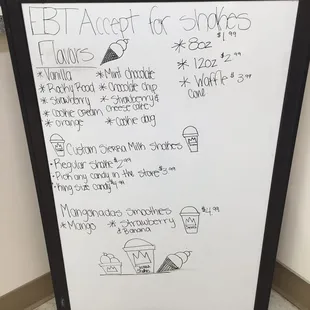 EBT Accept for shakes
Flavors
* Vanilla
* Rocky Road
* strawberry
* Cookie cream
* orange
* Mint chocolate
* Chocolate chip
* Strawberry & cheese cake
* Cookie doug
* 8oz $1.99
* 12oz $2.99
* Waffle $3.99
Cone
Custom Sierra Milk Shakes
• Regular shake $2.99
• Pick any candy in the store $3.99
• King size candy $4.99
Manganadas smoothies $4.99
* Mango
* Strawberry
& Banana